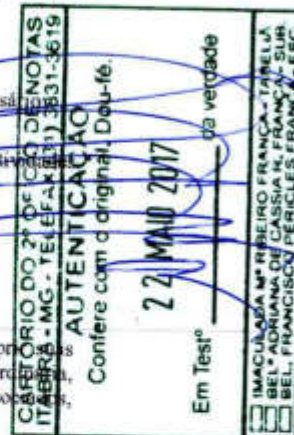 CARTÓRIO DO 2º OFÍCIO DE NOTAS
ITABIRA - MG - TELEFAX (31) 3831-3619
AUTENTICAÇÃO
Confere com o original. Dou-fé.
22 MAIO 2017
Em Testº da verdade
IMACULADA Mª RIBEIRO FRANÇA - TABELIÃ
BELª ADRIANA DE CASSIA H. FRANÇA - SUB.
BEL. FRANCISCO PÉRICLES FRANÇA - ESC.